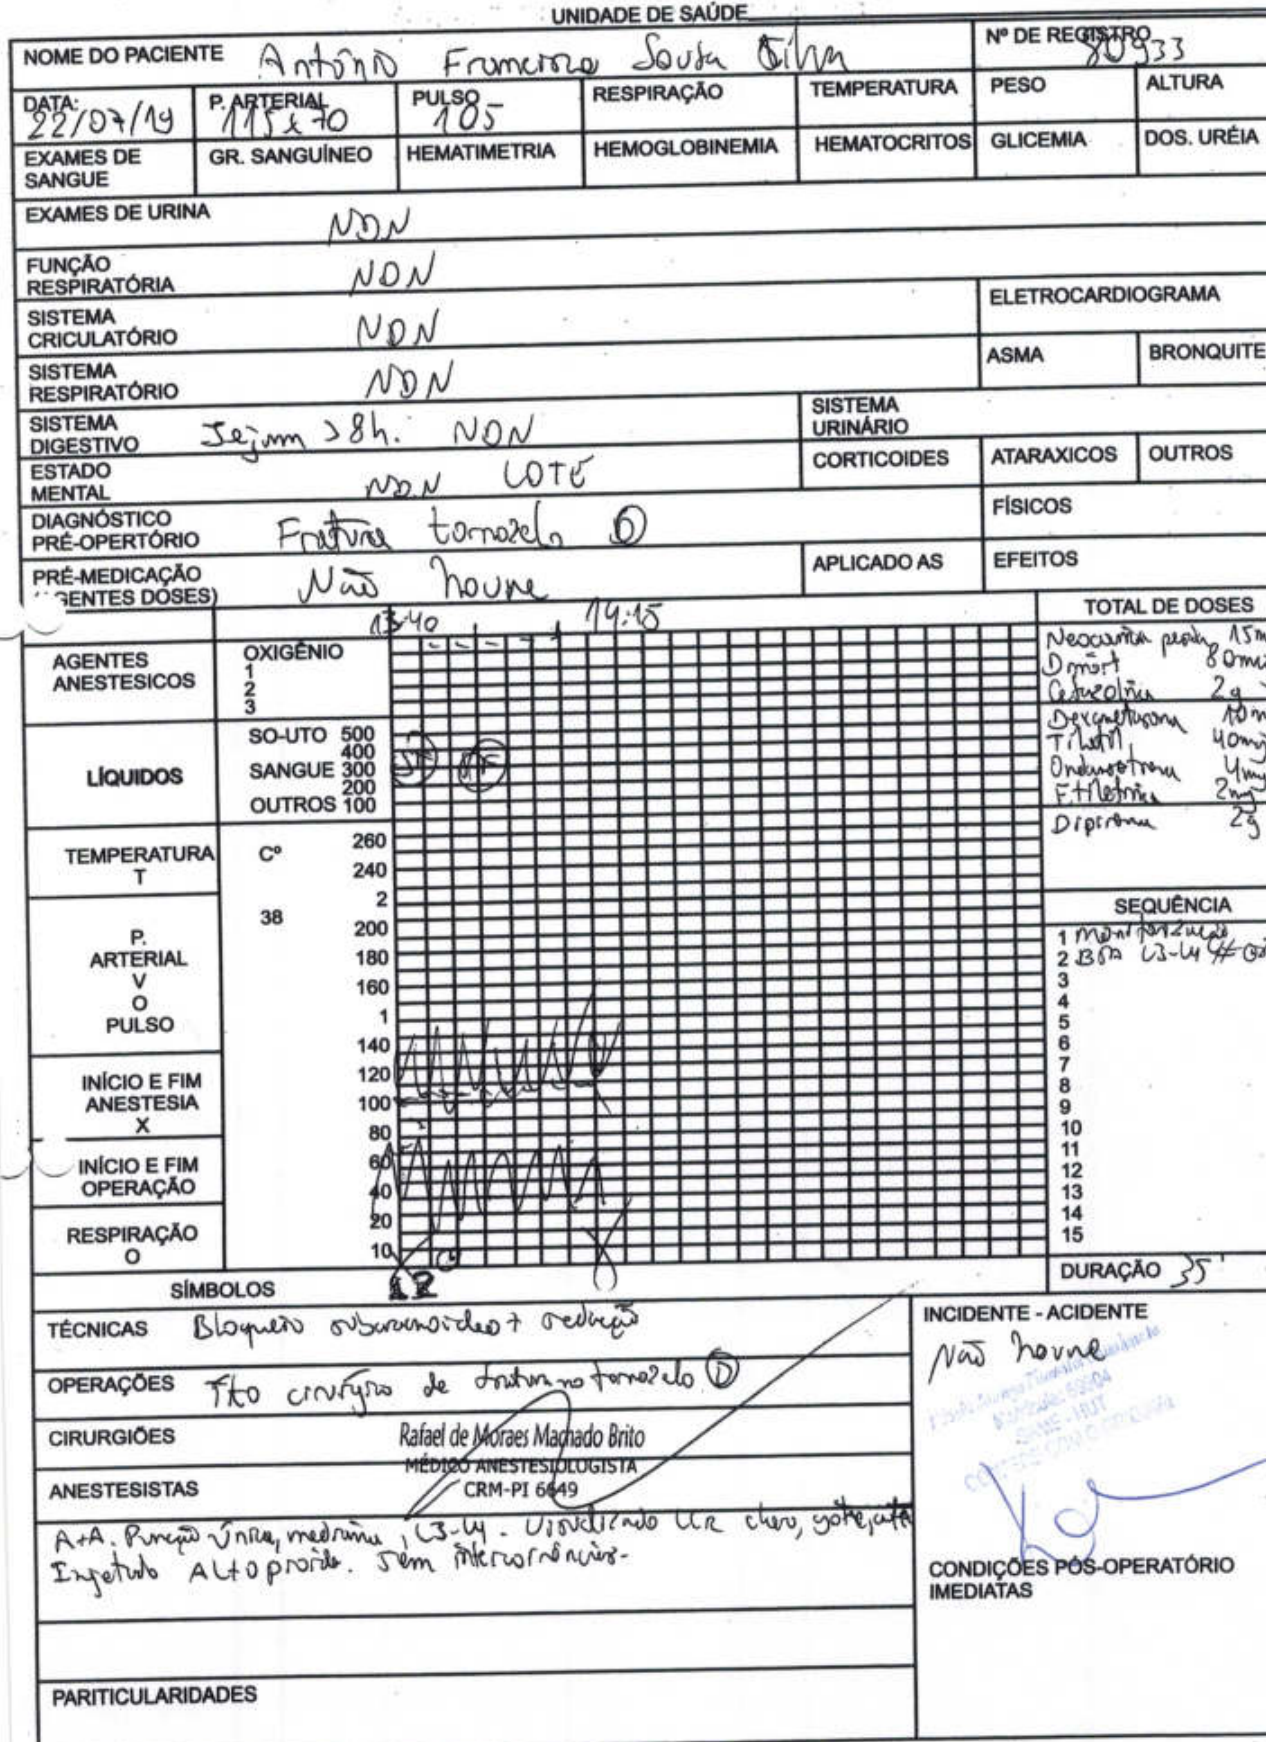 UNIDADE DE SAÚDE
NOME DO PACIENTE Antônio Sousa Silva Nº DE REGISTRO 80933
DATA: 22/07/19 P. ARTERIAL 115x70 PULSO 105 RESPIRAÇÃO TEMPERATURA PESO ALTURA
EXAMES DE SANGUE GR. SANGUÍNEO HEMATIMETRIA HEMOGLOBINEMIA HEMATOCRITOS GLICEMIA DOS. URÉIA
EXAMES DE URINA NDN
FUNÇÃO
RESPIRATÓRIA NDN
ELETROCARDIOGRAMA
SISTEMA
CRICULATÓRIO NDN
ASMA BRONQUITE
SISTEMA
RESPIRATÓRIO NDN
SISTEMA
DIGESTIVO Jejum >8h. NDN
SISTEMA
URINÁRIO
ESTADO
MENTAL NDN LOTE
CORTICOIDES ATARAXICOS OUTROS
DIAGNÓSTICO
PRÉ-OPERTÓRIO Fratura tornozelo D
FÍSICOS
PRÉ-MEDICAÇÃO
GENTES DOSES) Não houve
APLICADO AS EFEITOS
13:40 14:15
TOTAL DE DOSES
AGENTES
ANESTESICOS
OXIGÊNIO
1
2
3
Neocaína 15m
Dimorf 80mc
Cefazolina 2g
Dexametasona 10m
Tilatil 40mg
Ondansetrona 4mg
2mg
Dipirona 2g
LÍQUIDOS
SO-UTO 500
400
SANGUE 300
200
OUTROS 100
TEMPERATURA
T
Cº
38
260
240
2
200
180
160
1
140
120
100
80
60
40
20
10
P.
ARTERIAL
V
O
PULSO
INÍCIO E FIM
ANESTESIA
X
INÍCIO E FIM
OPERAÇÃO
RESPIRAÇÃO
O
SEQUÊNCIA
1 Monitorização
2 L3-L4
3
4
5
6
7
8
9
10
11
12
13
14
15
SÍMBOLOS 1 2
DURAÇÃO 35'
TÉCNICAS Bloqueio subaracnoideo + sedação
OPERAÇÕES Tto cirúrgico de fratura no tornozelo D
CIRURGIÕES
Rafael de Moraes Machado Brito
MÉDICO ANESTESIOLOGISTA
CRM-PI 6649
ANESTESISTAS
A+A. Punção única, mediana, L3-L4. Visualizado LCR claro,
sem intercorrências.
INCIDENTE - ACIDENTE
Não houve
CONDIÇÕES PÓS-OPERATÓRIO
IMEDIATAS
PARITICULARIDADES